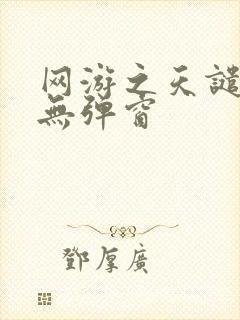 网游之天譴
無弹窗
鄧厚廣